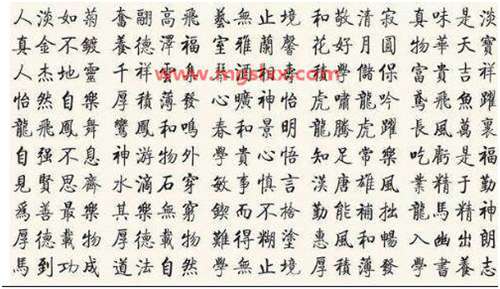 人淡如菊 奮翮高飛 藝無止境 和敬清寂 真味是淡
真金不鍍 養德澤福 室雅蘭馨 花好月圓 物華天寶
人杰地靈 千祥 富貴吉祥
怡然自樂 厚積薄發 心曠神怡 虎嘯龍吟 鳶飛魚躍
龍飛鳳舞 鸞鳳和鳴 春和景明 龍騰虎躍 長風萬裏
自强不息 神游物外 學貴心悟 知足常樂 吃虧是福
見賢思齊 水滴石穿 敏事慎言 漢唐雄風 業精于勤
爲善最樂 其樂無窮 鍥而不捨 勤能補拙 龍馬精神
厚德載物 厚德載物 難得糊塗 惠風和暢 入幽出朗
馬到功成 道法自然 學無止境 厚積薄發 學書養志